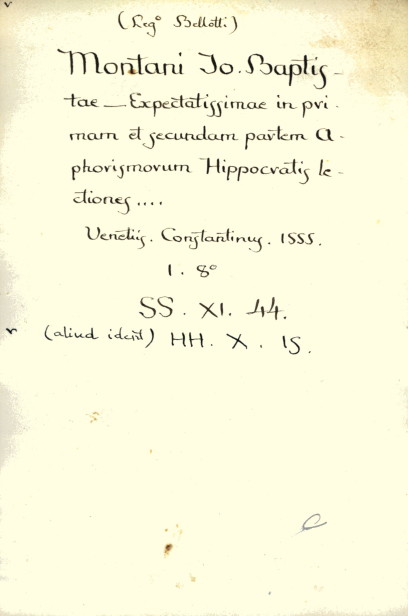 (Leg° Bellotti)
Montani Jo. Baptis-
tae — Expectatissimae in pri-
mam et secundam partem A-
phorismorum Hippocratis le-
ctiones....
Venetiis. Constantinus. 1555.
1. 8°
SS. XI. 44.
(aliud ident) HH. X. 15.
e